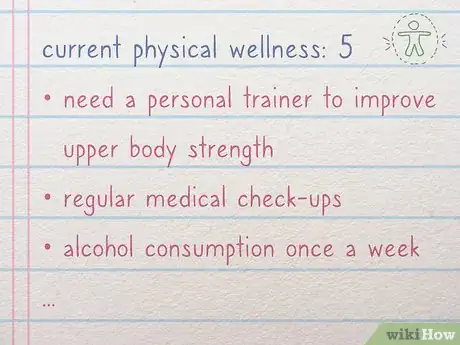 current physical wellness: 5
• need a personal trainer to improve
upper body strength
• regular medical check-ups
• alcohol consumption once a week
...
wikiHow